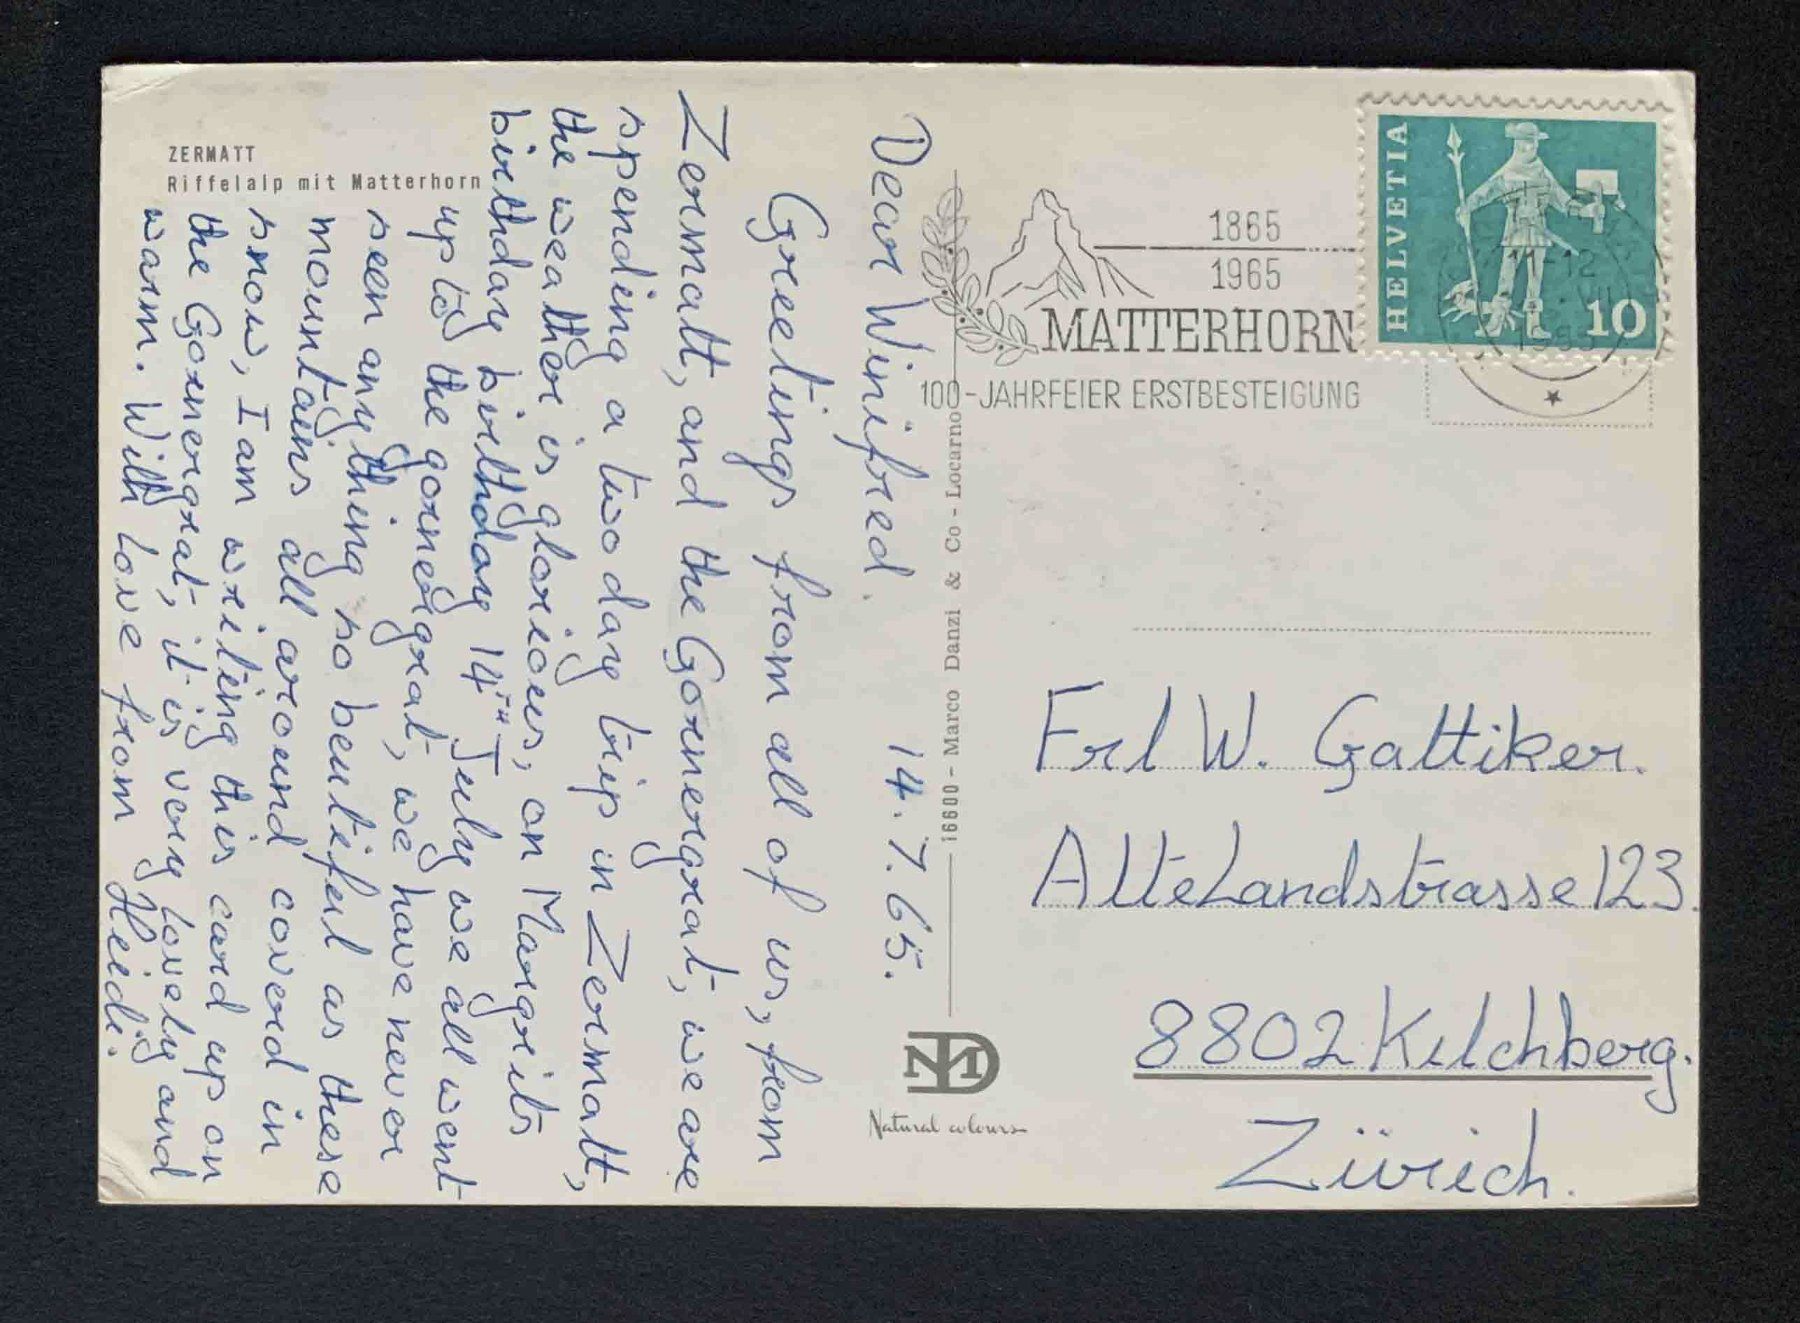 ZERMATT
Riffelalp mit Matterhorn
Dear Winifred.
14.7.65.
Greetings from all of us, from
Zermatt, and the Gornergrat, we are
spending a two day trip in Zermatt,
the weather is glorious, on Margrits
birthday birthday 14TH July we all went
up to the gornergrat, we have never
seen anything so beutiful as these
mountains all around coverd in
snow, I am writing this card up on
the Gornergrat, it is very lovely and
warm. With love from Heidi.
16600 - Marco Danzi & Co - Locarno
1865
1965
MATTERHORN
100-JAHRFEIER ERSTBESTEIGUNG
HELVETIA
10
11-12
VII
Frl W. Gattiker.
Alte Landstrasse 123.
8802 Kilchberg.
Zürich.
MD
Natural colours